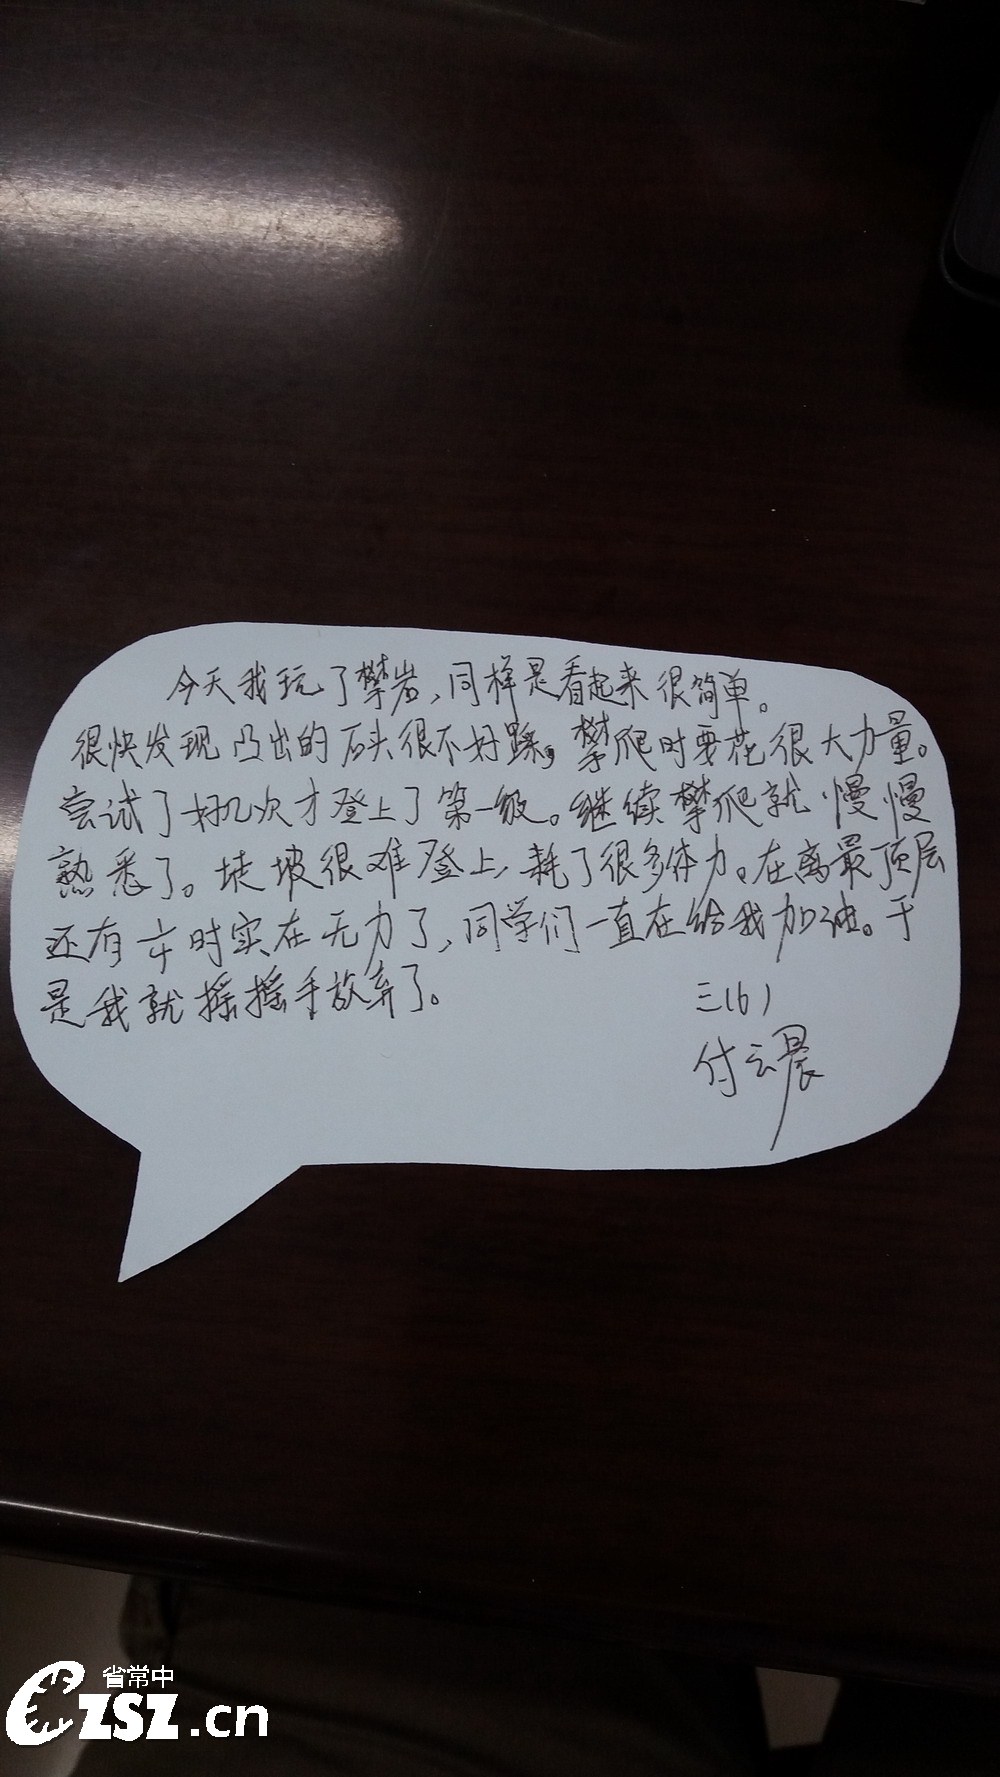 今天我玩了攀岩,同样是看起来很简单。
很快发现凸出的石头很不好踩,攀爬时要花很大力量。
尝试了好几次才登上了第一级。继续攀爬就慢慢
熟悉了。陡坡很难登上,耗了很多体力。在离最顶层
还有 时实在无力了,同学们一直在给我加油。于
是我就摇摇手放弃了。
三(6)
付云晨
省常中
CZSZ.cn